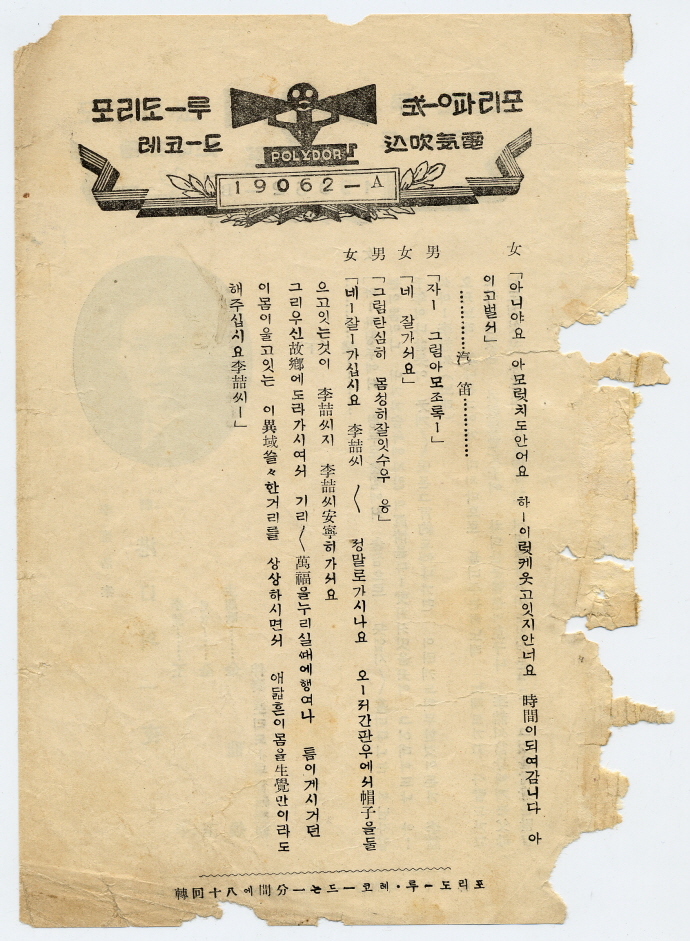 포리파ㅇㅡ式
電氣吹込
포리도ㅡ루
레코ㅡ드
POLYDOR
19062－A
女「아니야요 아모럿치도안어요 하ㅣ이럿케웃고잇지안너요 時間이되여감니다 아
이고벌서」
…………汽 笛…………
男「자ㅣ 그럼아모조록ㅣ」
女「네 잘가서요」
男「그럼탄심히 몸성히잘잇수우 응」
女「네ㅣ잘ㅣ가십시요 李喆씨 〱 정말로가시나요 오ㅣ저간판우에서帽子을둘
으고잇는것이 李喆씨지 李喆씨安寧히가서요
그리우신故鄕에도라가시여서 기리〱萬福을누리실때에행여나 틈이게시거던
이몸이울고잇는 이異域쓸々한거리를 상상하시면서 애닯흔이몸을生覺만이라도
해주십시요李喆씨ㅣ」
포리도ㅡ루・레코ㅡ드는一分間에八十回轉